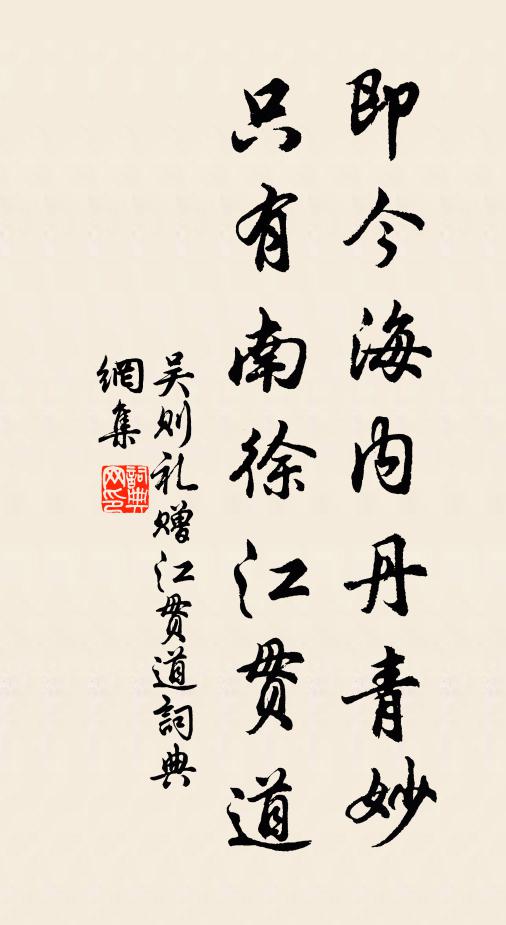 即今海内丹青妙
只有南徐江贯道
吴则礼赠江贯道詞典
網集
詞典
网印